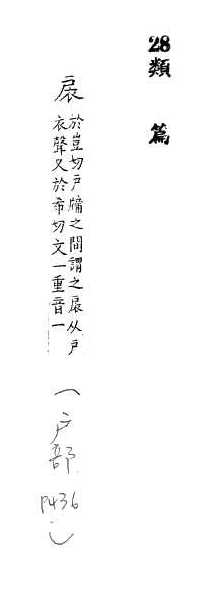 28類 篇
扆
於豈切戶牖之間謂之扆从戶
衣聲又於希切文一重音一
(戶部 P436)